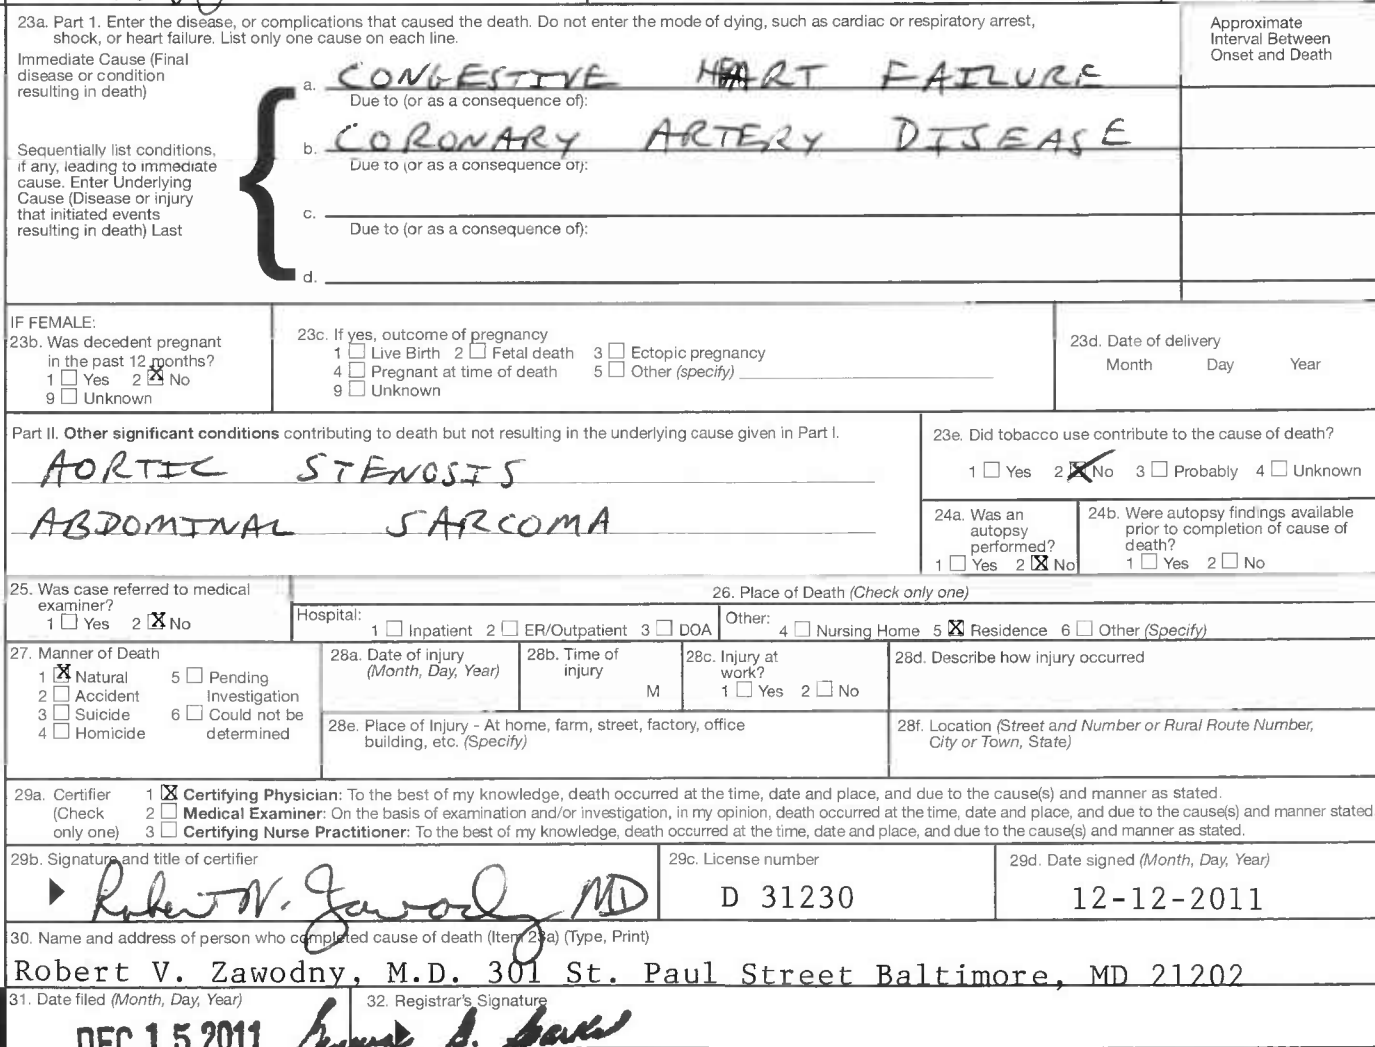 23a. Part 1. Enter the disease, or complications that caused the death. Do not enter the mode of dying, such as cardiac or respiratory arrest,
shock, or heart failure. List only one cause on each line.
Approximate
Interval Between
Onset and Death
Immediate Cause (Final
disease or condition
resulting in death)
a. CONGESTIVE HEART FAILURE
Due to (or as a consequence of):
Sequentially list conditions,
if any, leading to immediate
cause. Enter Underlying
Cause (Disease or injury
that initiated events
resulting in death) Last
b. CORONARY ARTERY DISEASE
Due to (or as a consequence of):
c.
Due to (or as a consequence of):
d.
IF FEMALE:
23b. Was decedent pregnant
in the past 12 months?
1 ☐ Yes 2 ☒ No
9 ☐ Unknown
23c. If yes, outcome of pregnancy
1 ☐ Live Birth 2 ☐ Fetal death 3 ☐ Ectopic pregnancy
4 ☐ Pregnant at time of death 5 ☐ Other (specify)
9 ☐ Unknown
23d. Date of delivery
Month Day Year
Part II. Other significant conditions contributing to death but not resulting in the underlying cause given in Part I.
AORTIC STENOSIS
ABDOMINAL SARCOMA
23e. Did tobacco use contribute to the cause of death?
1 ☐ Yes 2 ☒ No 3 ☐ Probably 4 ☐ Unknown
24a. Was an
autopsy
performed?
1 ☐ Yes 2 ☒ No
24b. Were autopsy findings available
prior to completion of cause of
death?
1 ☐ Yes 2 ☐ No
25. Was case referred to medical
examiner?
1 ☐ Yes 2 ☒ No
26. Place of Death (Check only one)
Hospital: 1 ☐ Inpatient 2 ☐ ER/Outpatient 3 ☐ DOA
Other: 4 ☐ Nursing Home 5 ☒ Residence 6 ☐ Other (Specify)
27. Manner of Death
1 ☒ Natural 5 ☐ Pending
2 ☐ Accident Investigation
3 ☐ Suicide 6 ☐ Could not be
4 ☐ Homicide determined
28a. Date of injury
(Month, Day, Year)
28b. Time of
injury
M
28c. Injury at
work?
1 ☐ Yes 2 ☐ No
28d. Describe how injury occurred
28e. Place of Injury - At home, farm, street, factory, office
building, etc. (Specify)
28f. Location (Street and Number or Rural Route Number,
City or Town, State)
29a. Certifier
(Check
only one)
1 ☒ Certifying Physician: To the best of my knowledge, death occurred at the time, date and place, and due to the cause(s) and manner as stated.
2 ☐ Medical Examiner: On the basis of examination and/or investigation, in my opinion, death occurred at the time, date and place, and due to the cause(s) and manner stated
3 ☐ Certifying Nurse Practitioner: To the best of my knowledge, death occurred at the time, date and place, and due to the cause(s) and manner as stated.
29b. Signature and title of certifier
Robert V. Zawodny MD
29c. License number
D 31230
29d. Date signed (Month, Day, Year)
12-12-2011
30. Name and address of person who completed cause of death (Item 23a) (Type, Print)
Robert V. Zawodny, M.D. 301 St. Paul Street Baltimore, MD 21202
31. Date filed (Month, Day, Year)
DEC 15 2011
32. Registrar's Signature